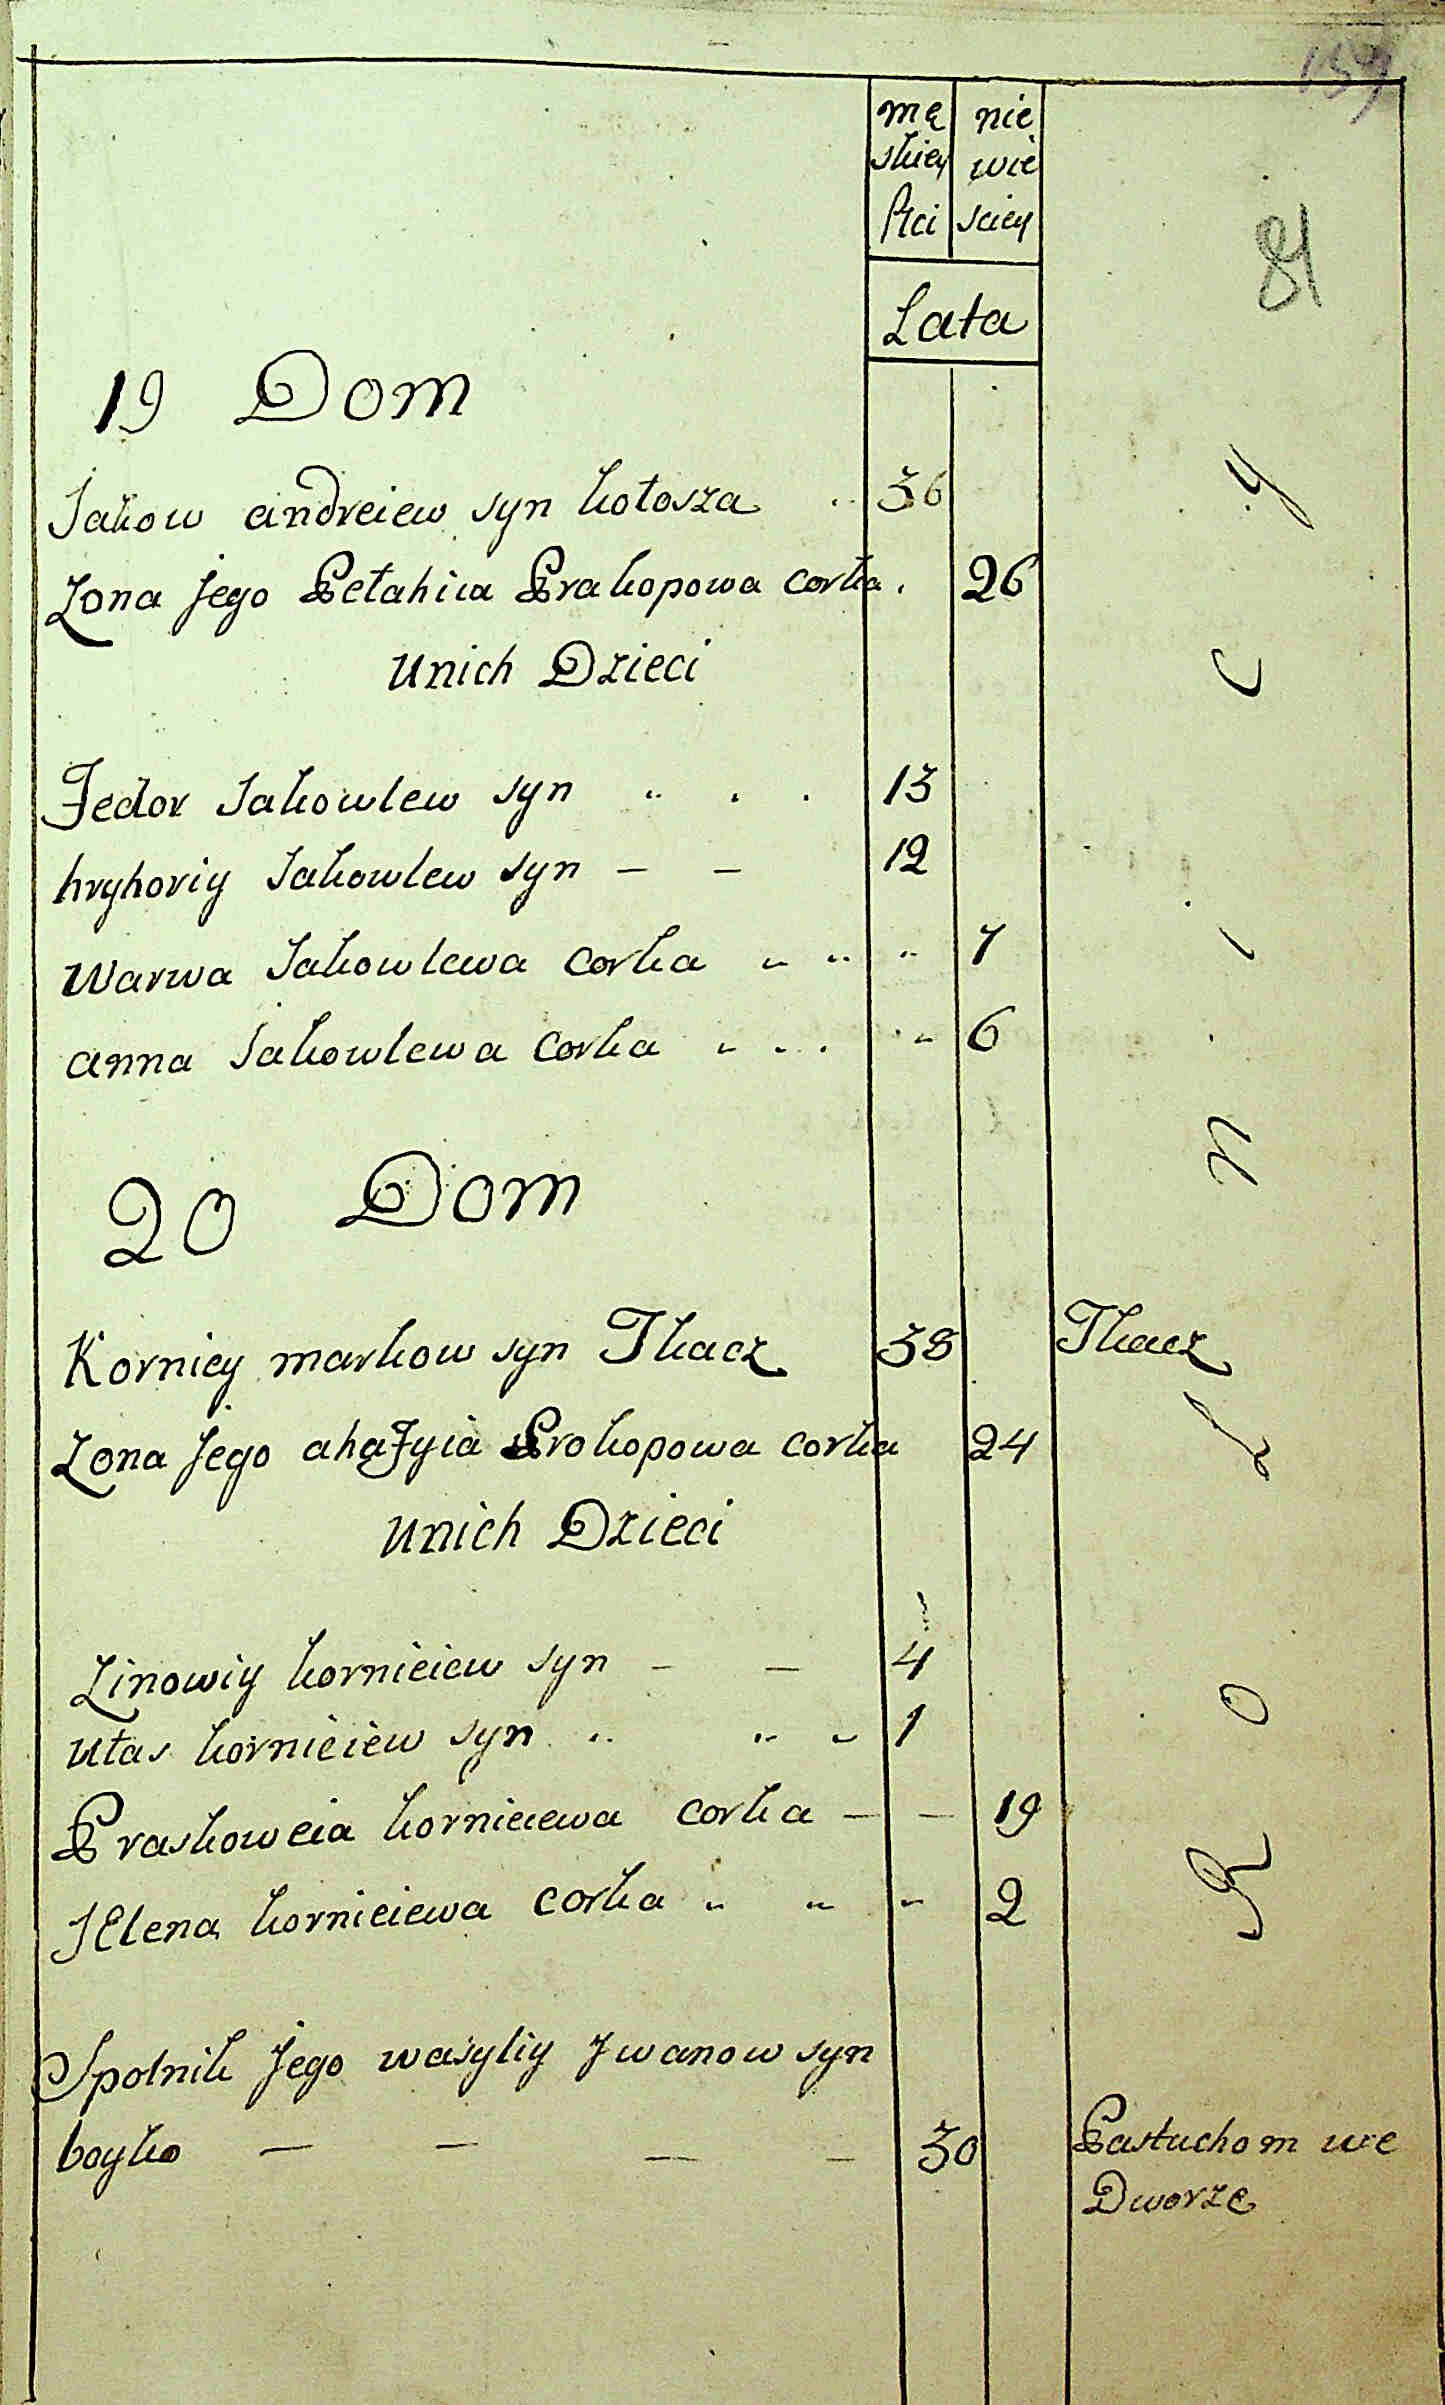 159
mę nie
skiey wie
Płci sciey
81
Lata
19 Dom
Jakow andreiew syn kołosza 36
Zona Jego Pełahiia Prakopowa corka 26
Unich Dzieci
Fedor Jakowlew syn 13
hryhoriy Jakowlew syn 12
Warwa Jakowlewa corka 7
anna Jakowlewa corka 6
20 Dom
Korniey markow syn Tkacz 38 Tkacz
Zona Jego ahafyia Prokopowa corka 24
Unich Dzieci
Zinowiy kornieiew syn 4
Ułas kornieiew syn 1
Praskoweia kornieiewa corka 19
JElena kornieiewa corka 2
Spolnik Jego wasyliy Jwanow syn
boyko 30 Pastuchom we
Dworze